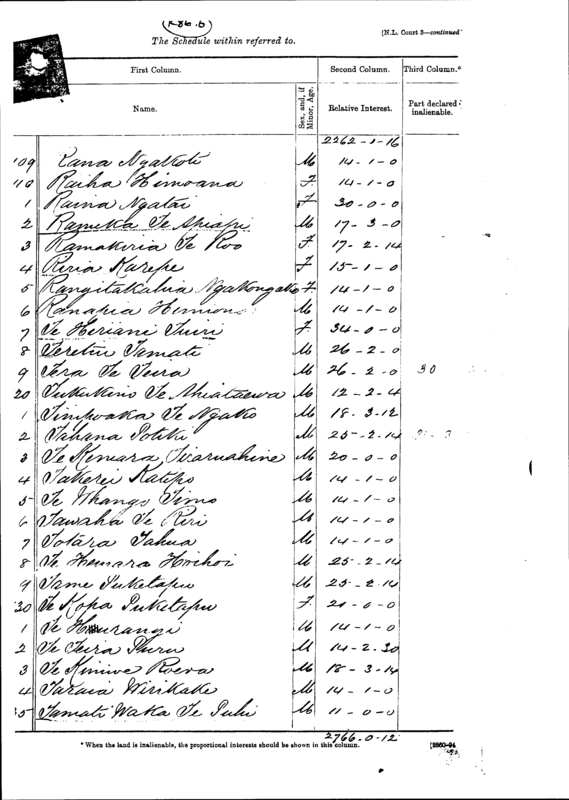 (K86.b)
[N.L. Court 3—continued
The Schedule within referred to.
First Column. Second Column. Third Column.*
Name. Sex, and, if Minor, Age. Relative Interest. Part declared inalienable.
2262-1-16
109 Rana Ngakoti M 14-1-0
110 Raiha Himoana F. 14-1-0
1 Raina Ngatai F 30-0-0
2 Rameka Te Ahiapi M 17-3-0
3 Ramakiria Te Koo F 17-2-14
4 Riria Karepe F 15-1-0
5 Rangitakahia Ngakongako F 14-1-0
6 Ranapia M 14-1-0
7 Te Heriani Tuiri F. 34-0-0
8 Teretiu Tamati M 26-2-0
9 Tera Te Teira M 26-2-0 30
20 Tukukino Te Ahiataewa M 12-2-4
1 Timpoaka Te Ngako M 18.3.12
2 Tahana Potiki M 25-2.14
3 Te Kimiara M 20-0-0
4 Takerei Katipo M 14-1-0
5 Te Whango Timo M 14-1-0
6 Tawaha Te Riri M 14-1-0
7 Totara Tahua M 14-1-0
8 Te Hemara Hoihoi M 25-2-14
9 Tame Puketapu M 25-2.14
130 Te Kopa Puketapu F. 21-0-0
1 Te Haurangi M 14-1-0
2 Te Teira Thuru M 14-2.30
3 Te Kiniwe Roera M 18-3-14
4 Taraia Wirikake M 14-1-0
5 Tamati Waka Te Puhi M 11-0-0
2766.0-12
* When the land is inalienable, the proportional interests should be shown in this column.
[2860-94